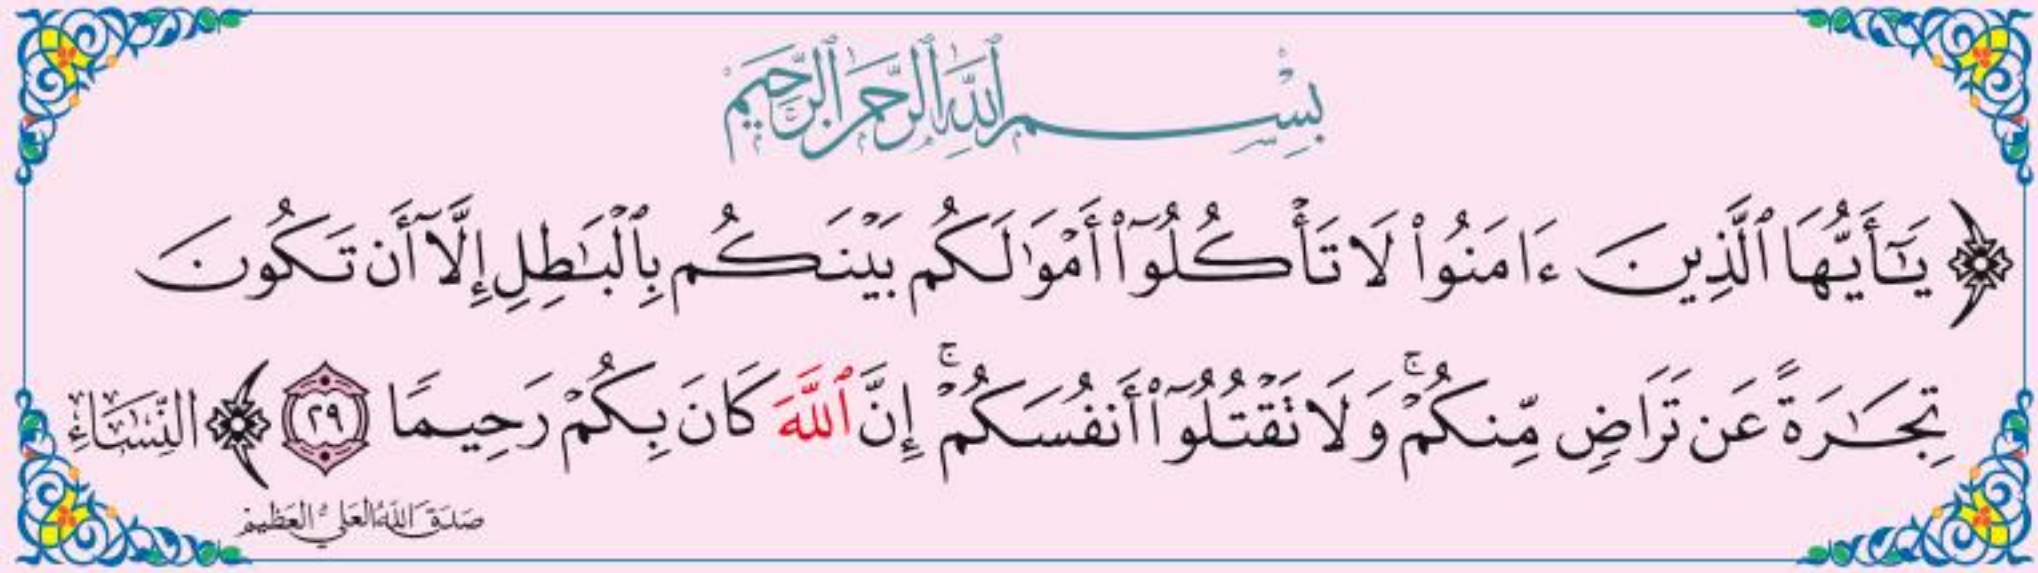 بِسْمِ ٱللَّهِ ٱلرَّحْمَٰنِ ٱلرَّحِيمِ
﴿ يَـٰٓأَيُّهَا ٱلَّذِينَ ءَامَنُوا۟ لَا تَأْكُلُوٓا۟ أَمْوَٰلَكُم بَيْنَكُم بِٱلْبَـٰطِلِ إِلَّآ أَن تَكُونَ
تِجَـٰرَةً عَن تَرَاضٍ مِّنكُمْ ۚ وَلَا تَقْتُلُوٓا۟ أَنفُسَكُمْ ۚ إِنَّ ٱللَّهَ كَانَ بِكُمْ رَحِيمًا ٢٩ ﴾ النِّسَاءُ
صَدَقَ اللَّهُ العَلِيُّ العَظِيمُ